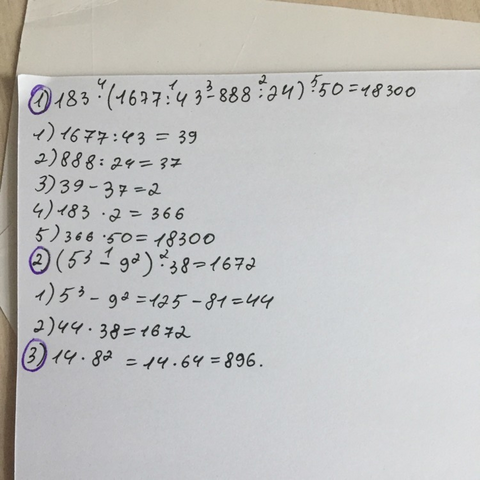 1) 183 · (1677 : 43 - 888 : 24) · 50 = 18300
1) 1677 : 43 = 39
2) 888 : 24 = 37
3) 39 - 37 = 2
4) 183 · 2 = 366
5) 366 · 50 = 18300
2) (5³ - 9²) · 38 = 1672
1) 5³ - 9² = 125 - 81 = 44
2) 44 · 38 = 1672
3) 14 · 8² = 14 · 64 = 896.